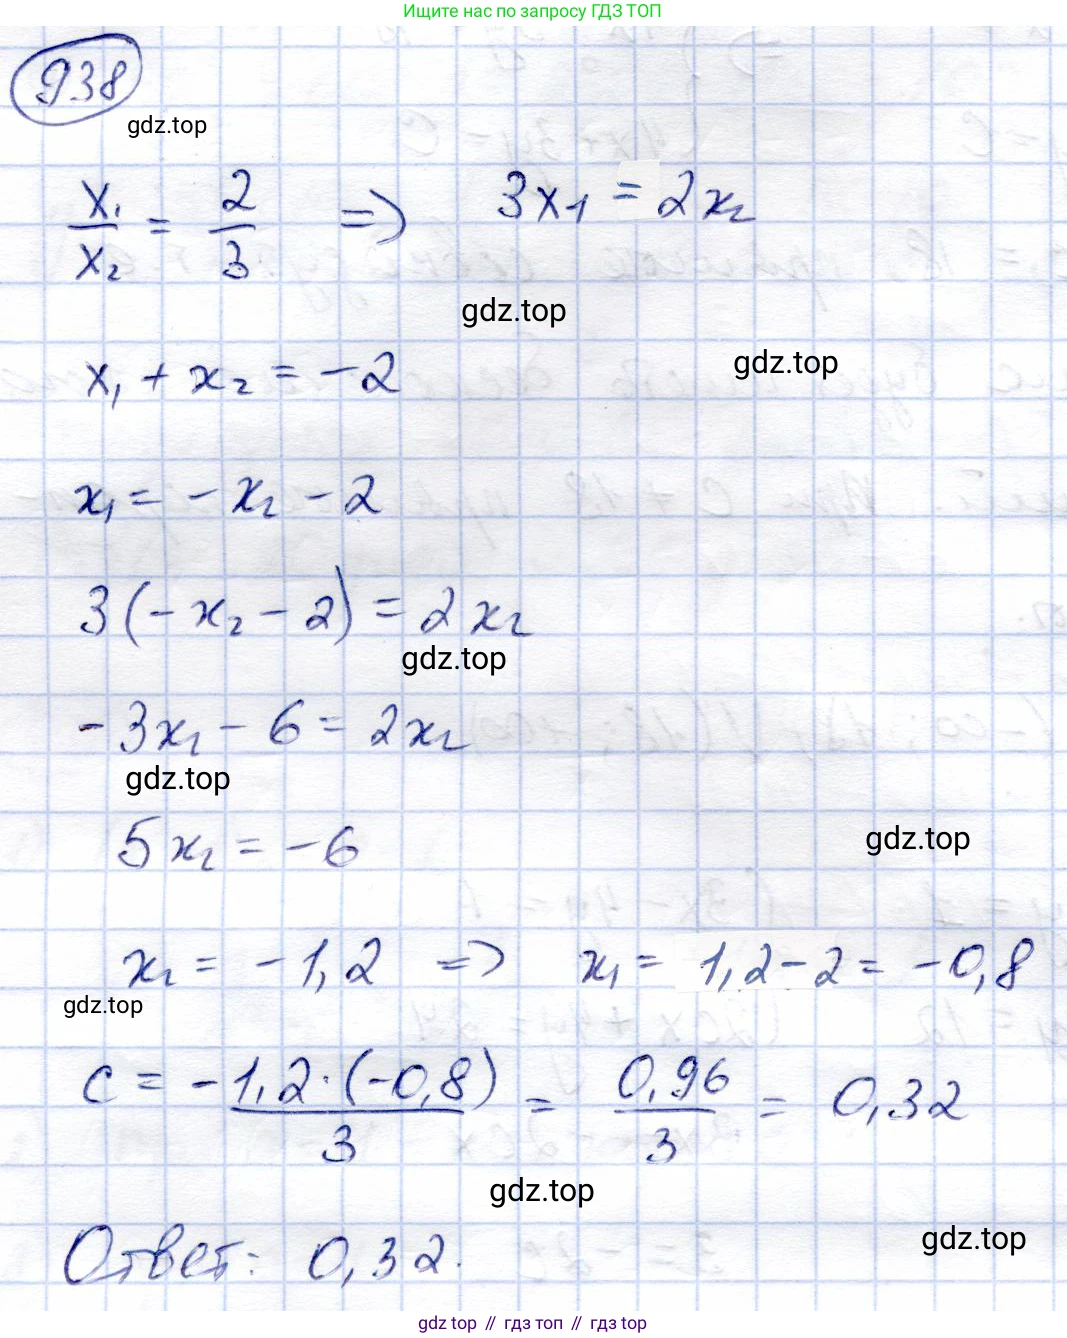 Ищите нас по запросу ГДЗ ТОП
938
gdz.top
x₁/x₂ = 2/3 => 3x₁ = 2x₂
gdz.top
x₁ + x₂ = -2
gdz.top
x₁ = -x₂ - 2
3(-x₂ - 2) = 2x₂
gdz.top
-3x₂ - 6 = 2x₂
gdz.top
5x₂ = -6
gdz.top
x₂ = -1,2 => x₁ = 1,2 - 2 = -0,8
gdz.top
c = -1,2·(-0,8)/3 = 0,96/3 = 0,32
gdz.top
Ответ: 0,32.
gdz.top
gdz top // гдз топ // gdz top